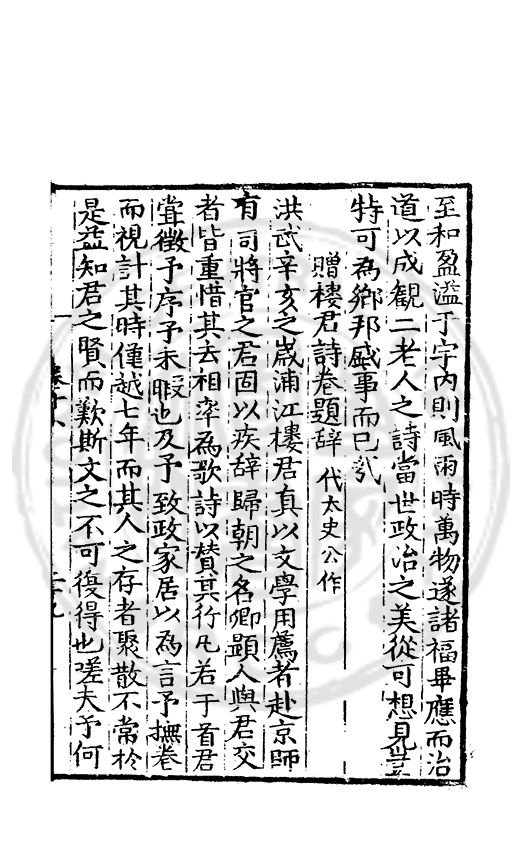 至和盈溢于宇内則風雨時萬物遂諸福畢應而治
道以成觀二老人之詩當世政治之美從可想見豈
特可為鄉邦盛事而已哉
贈樓君詩卷題辞 代太史公作
洪武辛亥之歲浦江樓君真以文學用薦者赴京師
有司將官之君固以疾辞歸朝之名卿顕人與君交
者皆重惜其去相率為歌詩以賛其行凡若干首君
甞徵予序予未暇也及予致政家居以為言予撫卷
而視計其時僅越七年而其人之存者聚散不常於
是益知君之賢而歎斯文之不可復得也嗟夫予何
卷十八
二十九